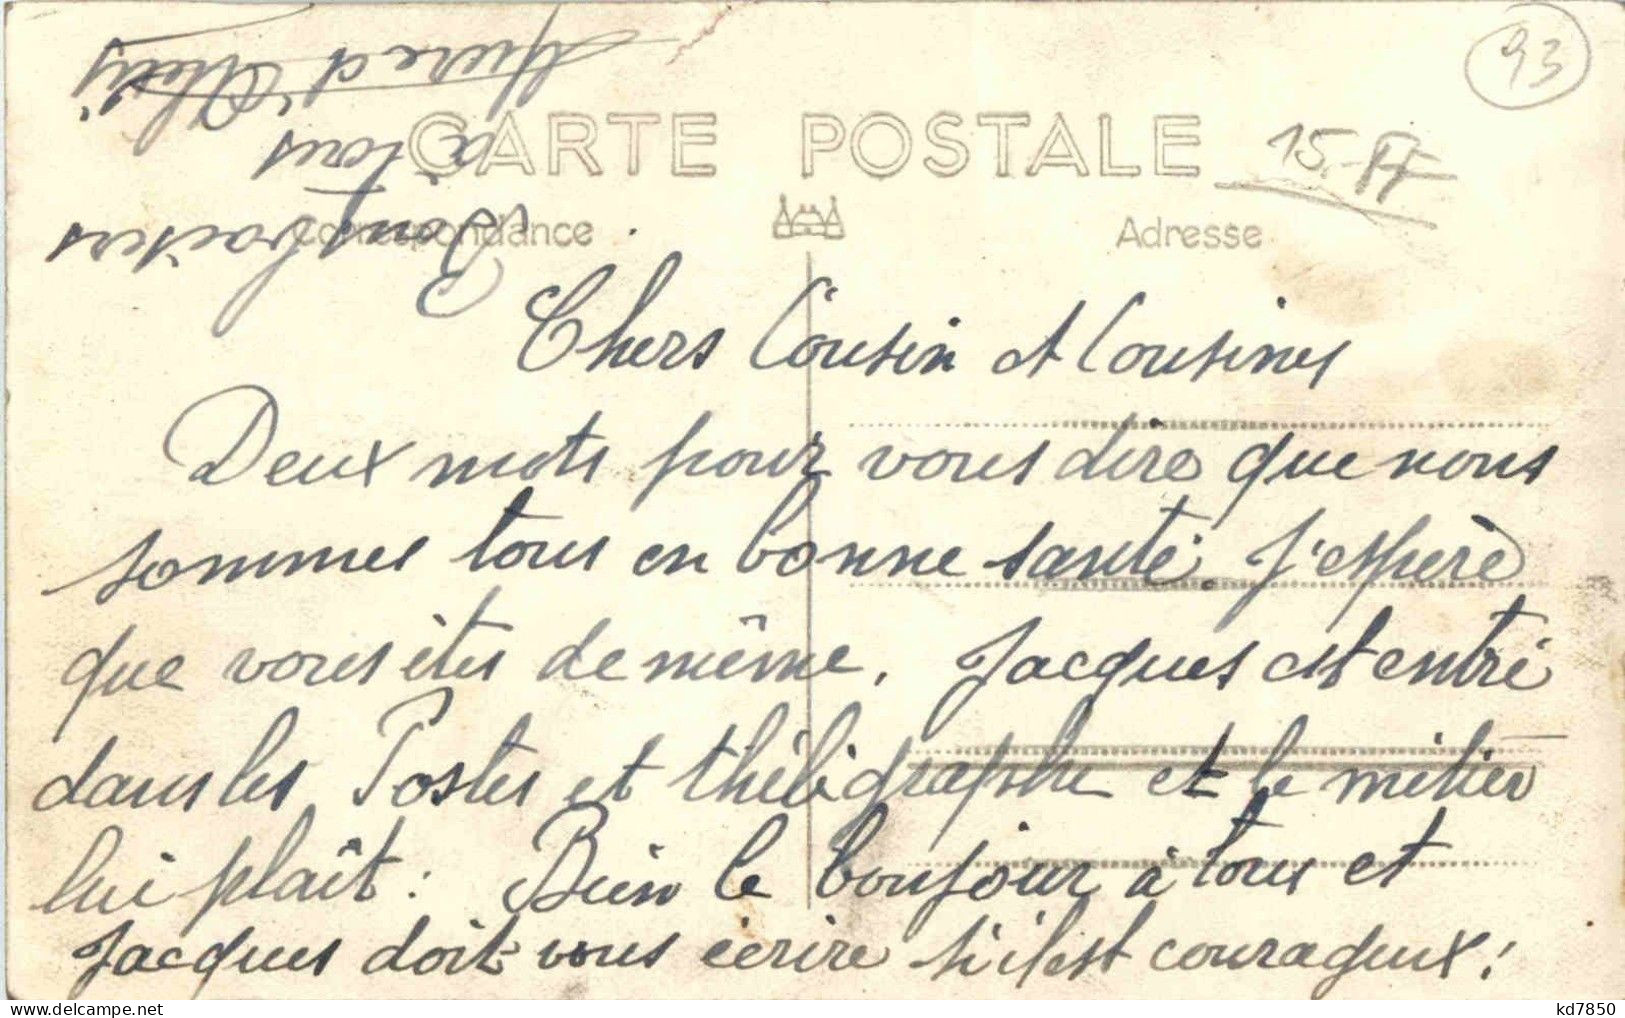 93
CARTE POSTALE
15.-FF
Correspondance
Adresse
Chers Cousin et Cousines
Deux mots pour vous dire que nous
sommes tous en bonne santé. J'espère
que vous êtes de même. Jacques est entré
dans les Postes et théligraphe et le métier
lui plaît. Bien le bonjour à tous et
Jacques doit vous écrire s'il est courageux!
Bons baisers
à tous
kd7850